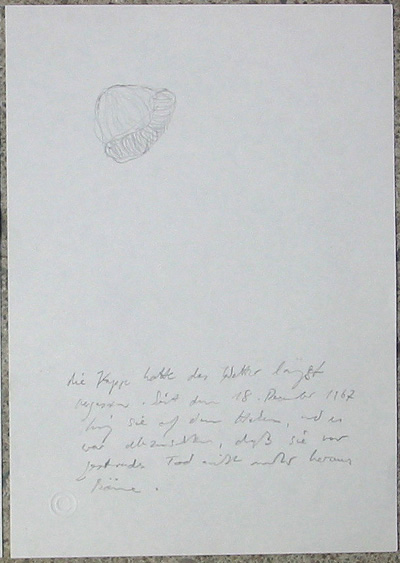 die Kappe hatte das Wetter längst
vergessen. Seit dem 18. Dezember 1967
hing sie auf dem Haken, und es
war abzusehen, daß sie vor
Tod nicht mehr heraus
käme.
©